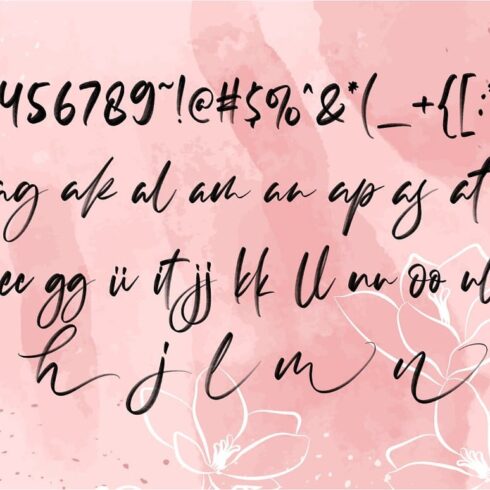 456789~!@#$%^&*(_+{[:
ag ak al am an ap as at
ee gg ii it jj kk ll nn oo
h j l m n